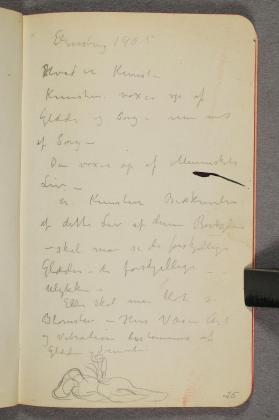 1905
Hvad er Kunst
Kunsten voxer op af
Glæde og Sorg – men mest
af Sorg –
Den voxer op af Menneskets
Liv –
er Kunsten Beskrivelsen
af dette Liv af denne
– skal man se de forskjellige
Glæder – de forskjellige
Ulykker –
Eller skal man blot se
Blomsten – Hvis Væsen Art
og Vibration bestemmes af
Glæde
25